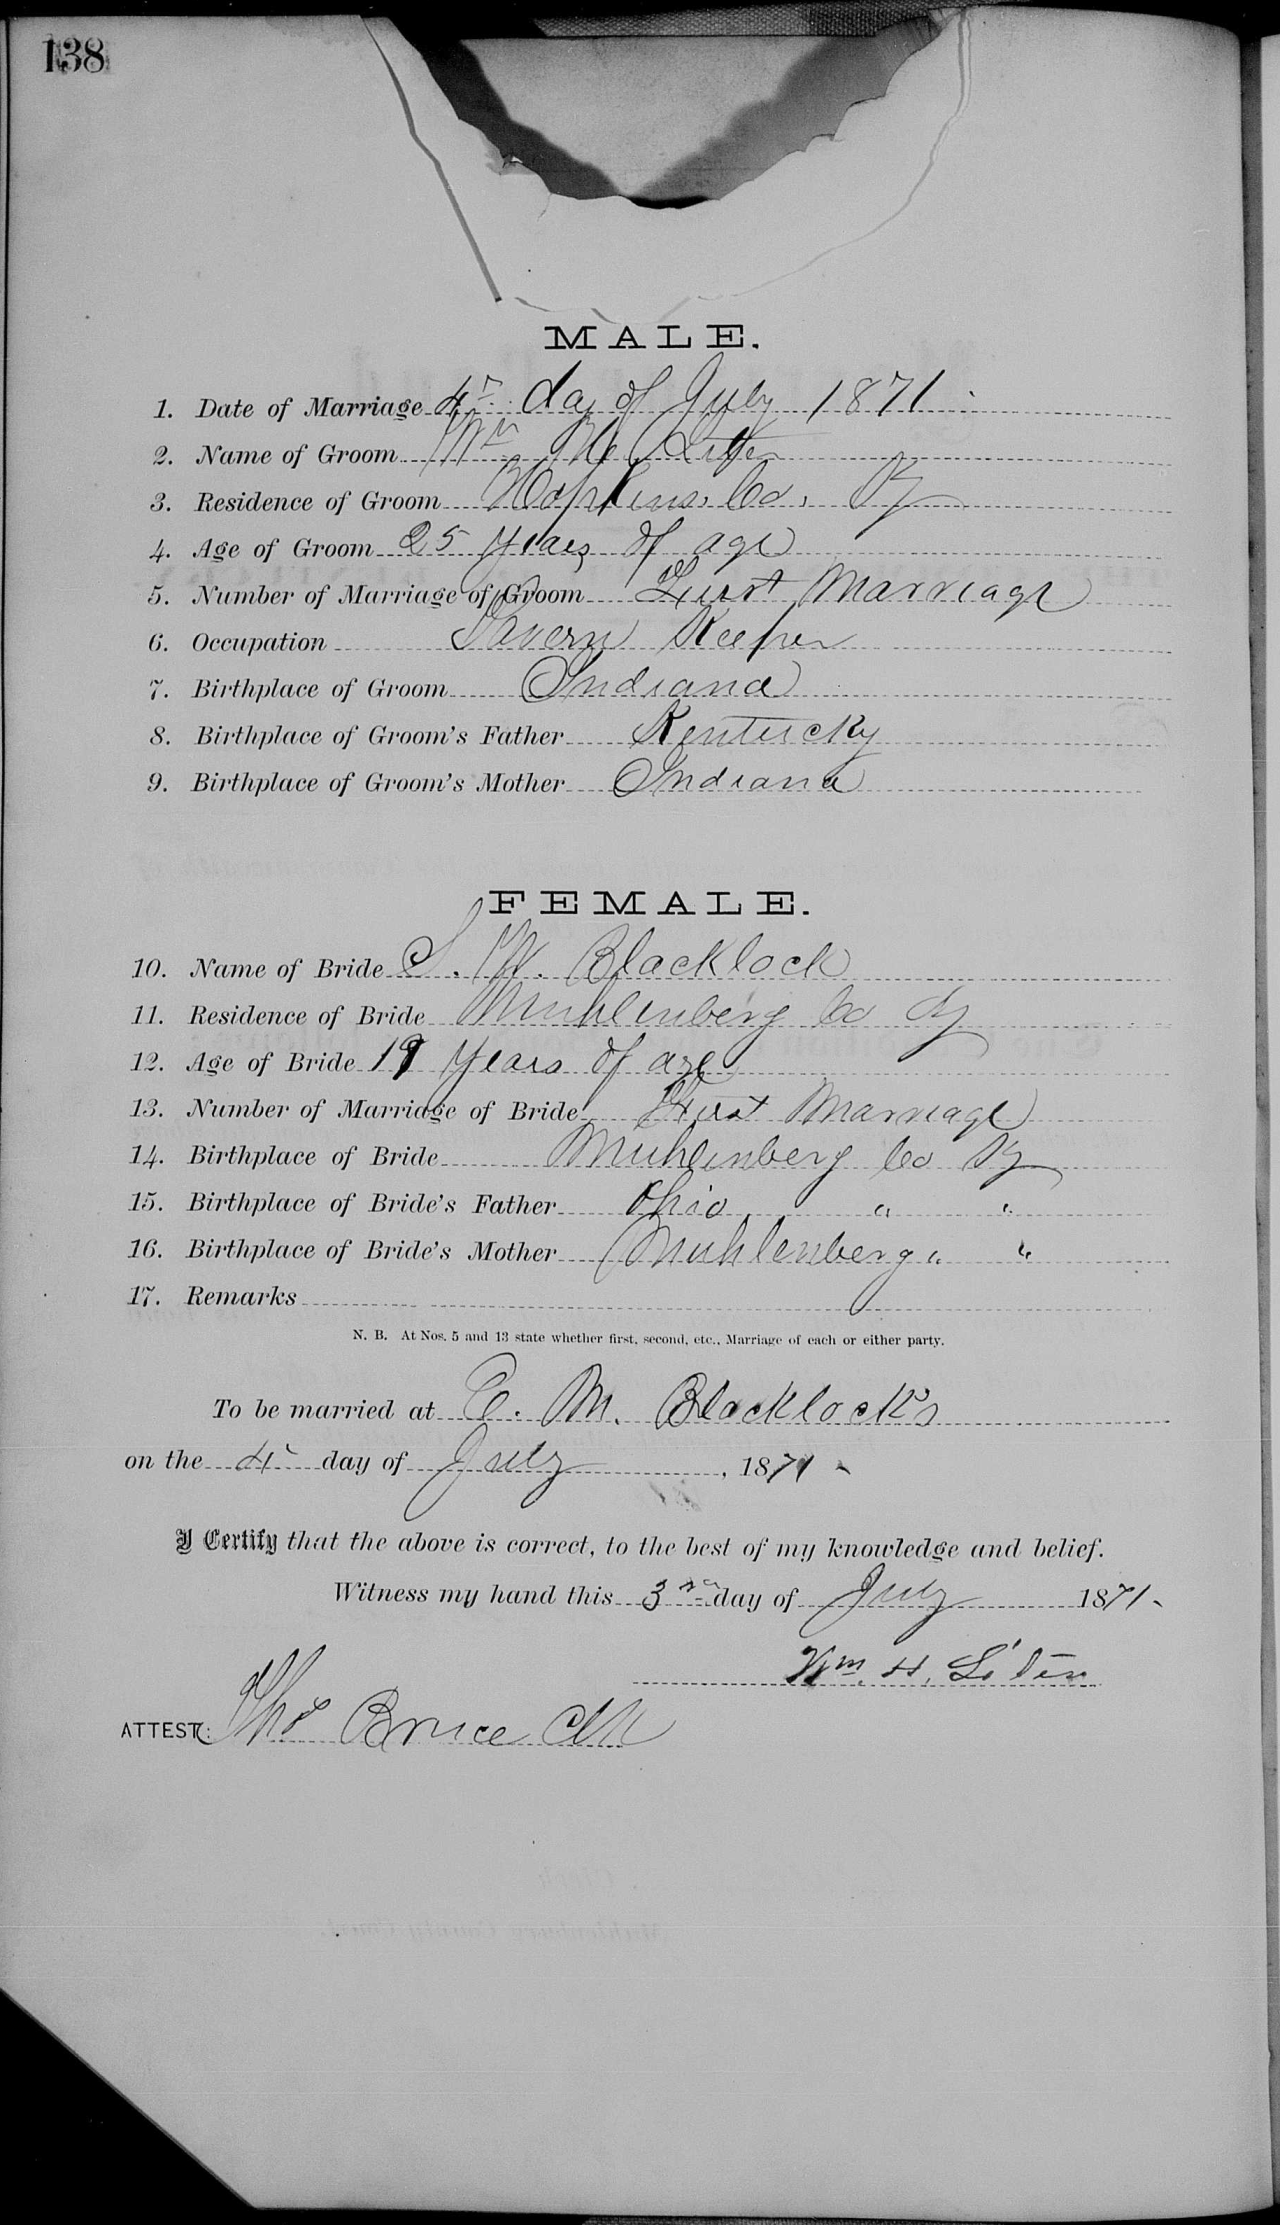 138
MALE.
1. Date of Marriage 4th day of July 1871.
2. Name of Groom Wm H Liter
3. Residence of Groom Hopkins, Co, Ky
4. Age of Groom 25 years of age
5. Number of Marriage of Groom First Marriage
6. Occupation Tavern Keeper
7. Birthplace of Groom Indiana
8. Birthplace of Groom's Father Kentucky
9. Birthplace of Groom's Mother Indiana
FEMALE.
10. Name of Bride S. M. Blacklock
11. Residence of Bride Muhlenberg Co Ky
12. Age of Bride 19 years of age
13. Number of Marriage of Bride First Marriage
14. Birthplace of Bride Muhlenberg Co Ky
15. Birthplace of Bride's Father Ohio " "
16. Birthplace of Bride's Mother Muhlenberg " "
17. Remarks
N. B. At Nos. 5 and 13 state whether first, second, etc., Marriage of each or either party.
To be married at M. Blacklock's
on the 4 day of July, 1871
I Certify that the above is correct, to the best of my knowledge and belief.
Witness my hand this 3rd day of July 1871.
Wm. H. Liter
ATTEST: Tho Bruce Clk